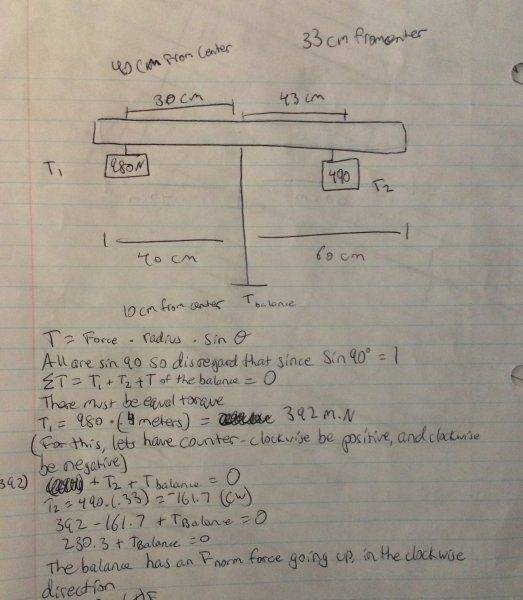 40 cm from center
33 cm from center
30 cm
43 cm
T₁
980N
490
T₂
40 cm
60 cm
10 cm from center
T balance
T = Force · radius · sin θ
All are sin 90 so disregard that since Sin 90° = 1
ΣT = T₁ + T₂ + T of the balance = 0
There must be equal torque
T₁ = 980 · (.4 meters) = 392 m·N
(For this, lets have counter-clockwise be positive, and clockwise
be negative)
392) + T₂ + T balance = 0
T₂ = 490 · (.33) = -161.7 (CW)
392 - 161.7 + T Balance = 0
230.3 + T Balance = 0
The balance has an F norm force going up, in the clockwise
direction